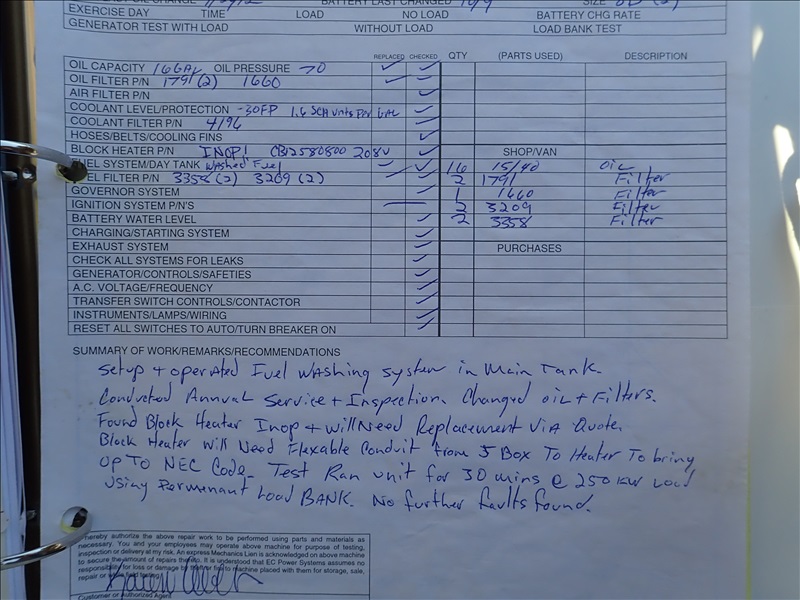 BATTERY LAST CHANGED
EXERCISE DAY TIME LOAD NO LOAD BATTERY CHG RATE
GENERATOR TEST WITH LOAD WITHOUT LOAD LOAD BANK TEST
REPLACED CHECKED QTY (PARTS USED) DESCRIPTION
OIL CAPACITY 16 GAL OIL PRESSURE 70
OIL FILTER P/N 1791 (2) 1660
AIR FILTER P/N
COOLANT LEVEL/PROTECTION -30FP 1.6 SCA Units Per GAL
COOLANT FILTER P/N 4196
HOSES/BELTS/COOLING FINS
BLOCK HEATER P/N INOP! 208V SHOP/VAN
FUEL SYSTEM/DAY TANK Washed Fuel 16 15/40 OIL
FUEL FILTER P/N 3358 (2) 3209 (2) 2 1791 Filter
GOVERNOR SYSTEM 1 1660 Filter
IGNITION SYSTEM P/N'S 2 3209 Filter
BATTERY WATER LEVEL 2 3358 Filter
CHARGING/STARTING SYSTEM
EXHAUST SYSTEM PURCHASES
CHECK ALL SYSTEMS FOR LEAKS
GENERATOR/CONTROLS/SAFETIES
A.C. VOLTAGE/FREQUENCY
TRANSFER SWITCH CONTROLS/CONTACTOR
INSTRUMENTS/LAMPS/WIRING
RESET ALL SWITCHES TO AUTO/TURN BREAKER ON
SUMMARY OF WORK/REMARKS/RECOMMENDATIONS
Setup + operated Fuel WAshing system in Main Tank.
Conducted Annual Service + Inspection. Changed oil + Filters.
Found Block Heater Inop + will Need Replacement Via Quote.
Block Heater Will Need Flexable Conduit from J Box To Heater To bring
up To NEC Code. Test Ran unit for 30 mins @ 250 KW Load
Using Permenant Load BANK. No further faults found.
hereby authorize the above repair work to be performed using parts and materials as
necessary. You and your employees may operate above machine for purpose of testing,
inspection or delivery at my risk. An express Mechanics Lien is acknowledged on above machine
to secure the amount of repairs thereto. It is understood that EC Power Systems assumes no
responsibility for loss or damage by theft or fire to machine placed with them for storage, sale,
repair or while field testing.
Customer or Authorized Agent